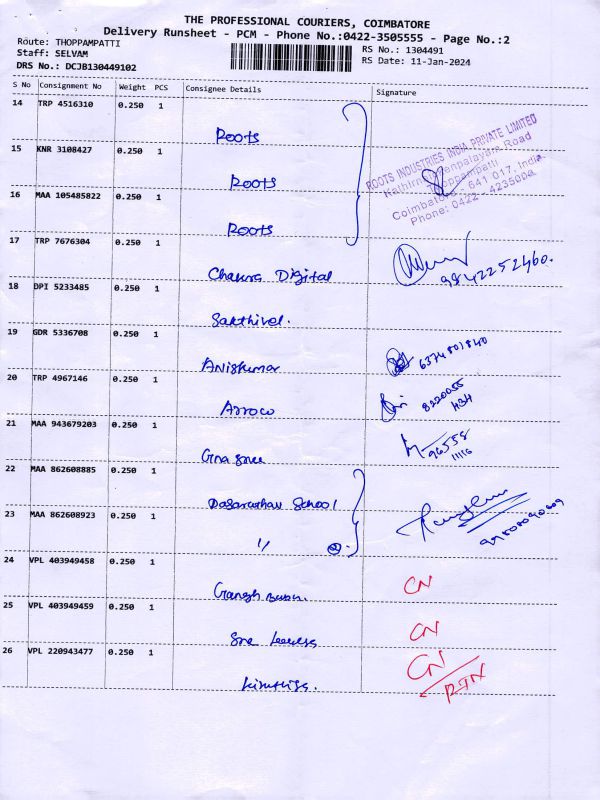 THE PROFESSIONAL COURIERS, COIMBATORE
Delivery Runsheet - PCM - Phone No.:0422-3505555 - Page No.:2
Route: THOPPAMPATTI
Staff: SELVAM
DRS No.: DCJB130449102
RS No.: 1304491
RS Date: 11-Jan-2024
S No Consignment No Weight PCS Consignee Details Signature
14 TRP 4516310 0.250 1
Roots
15 KNR 3108427 0.250 1
Roots
16 MAA 105485822 0.250 1
Roots
ROOTS INDUSTRIES INDIA PRIVATE LIMITED
Road
Thoppampatti
Coimbatore - 641 017, India.
Phone: 0422 - 4235000
17 TRP 7676304 0.250 1
Chakra Digital
9842252460.
18 DPI 5233485 0.250 1
Sakthivel.
19 GDR 5336708 0.250 1
Aniskumar
6374801840
20 TRP 4967146 0.250 1
Arroco
8220055
434
21 MAA 943679203 0.250 1
Gna Sree
96558
11116
22 MAA 862608885 0.250 1
School
23 MAA 862608923 0.250 1
11 2
24 VPL 403949458 0.250 1
Ganesh Babu.
CN
25 VPL 403949459 0.250 1
Sre
CN
26 VPL 220943477 0.250 1
CN
RTN